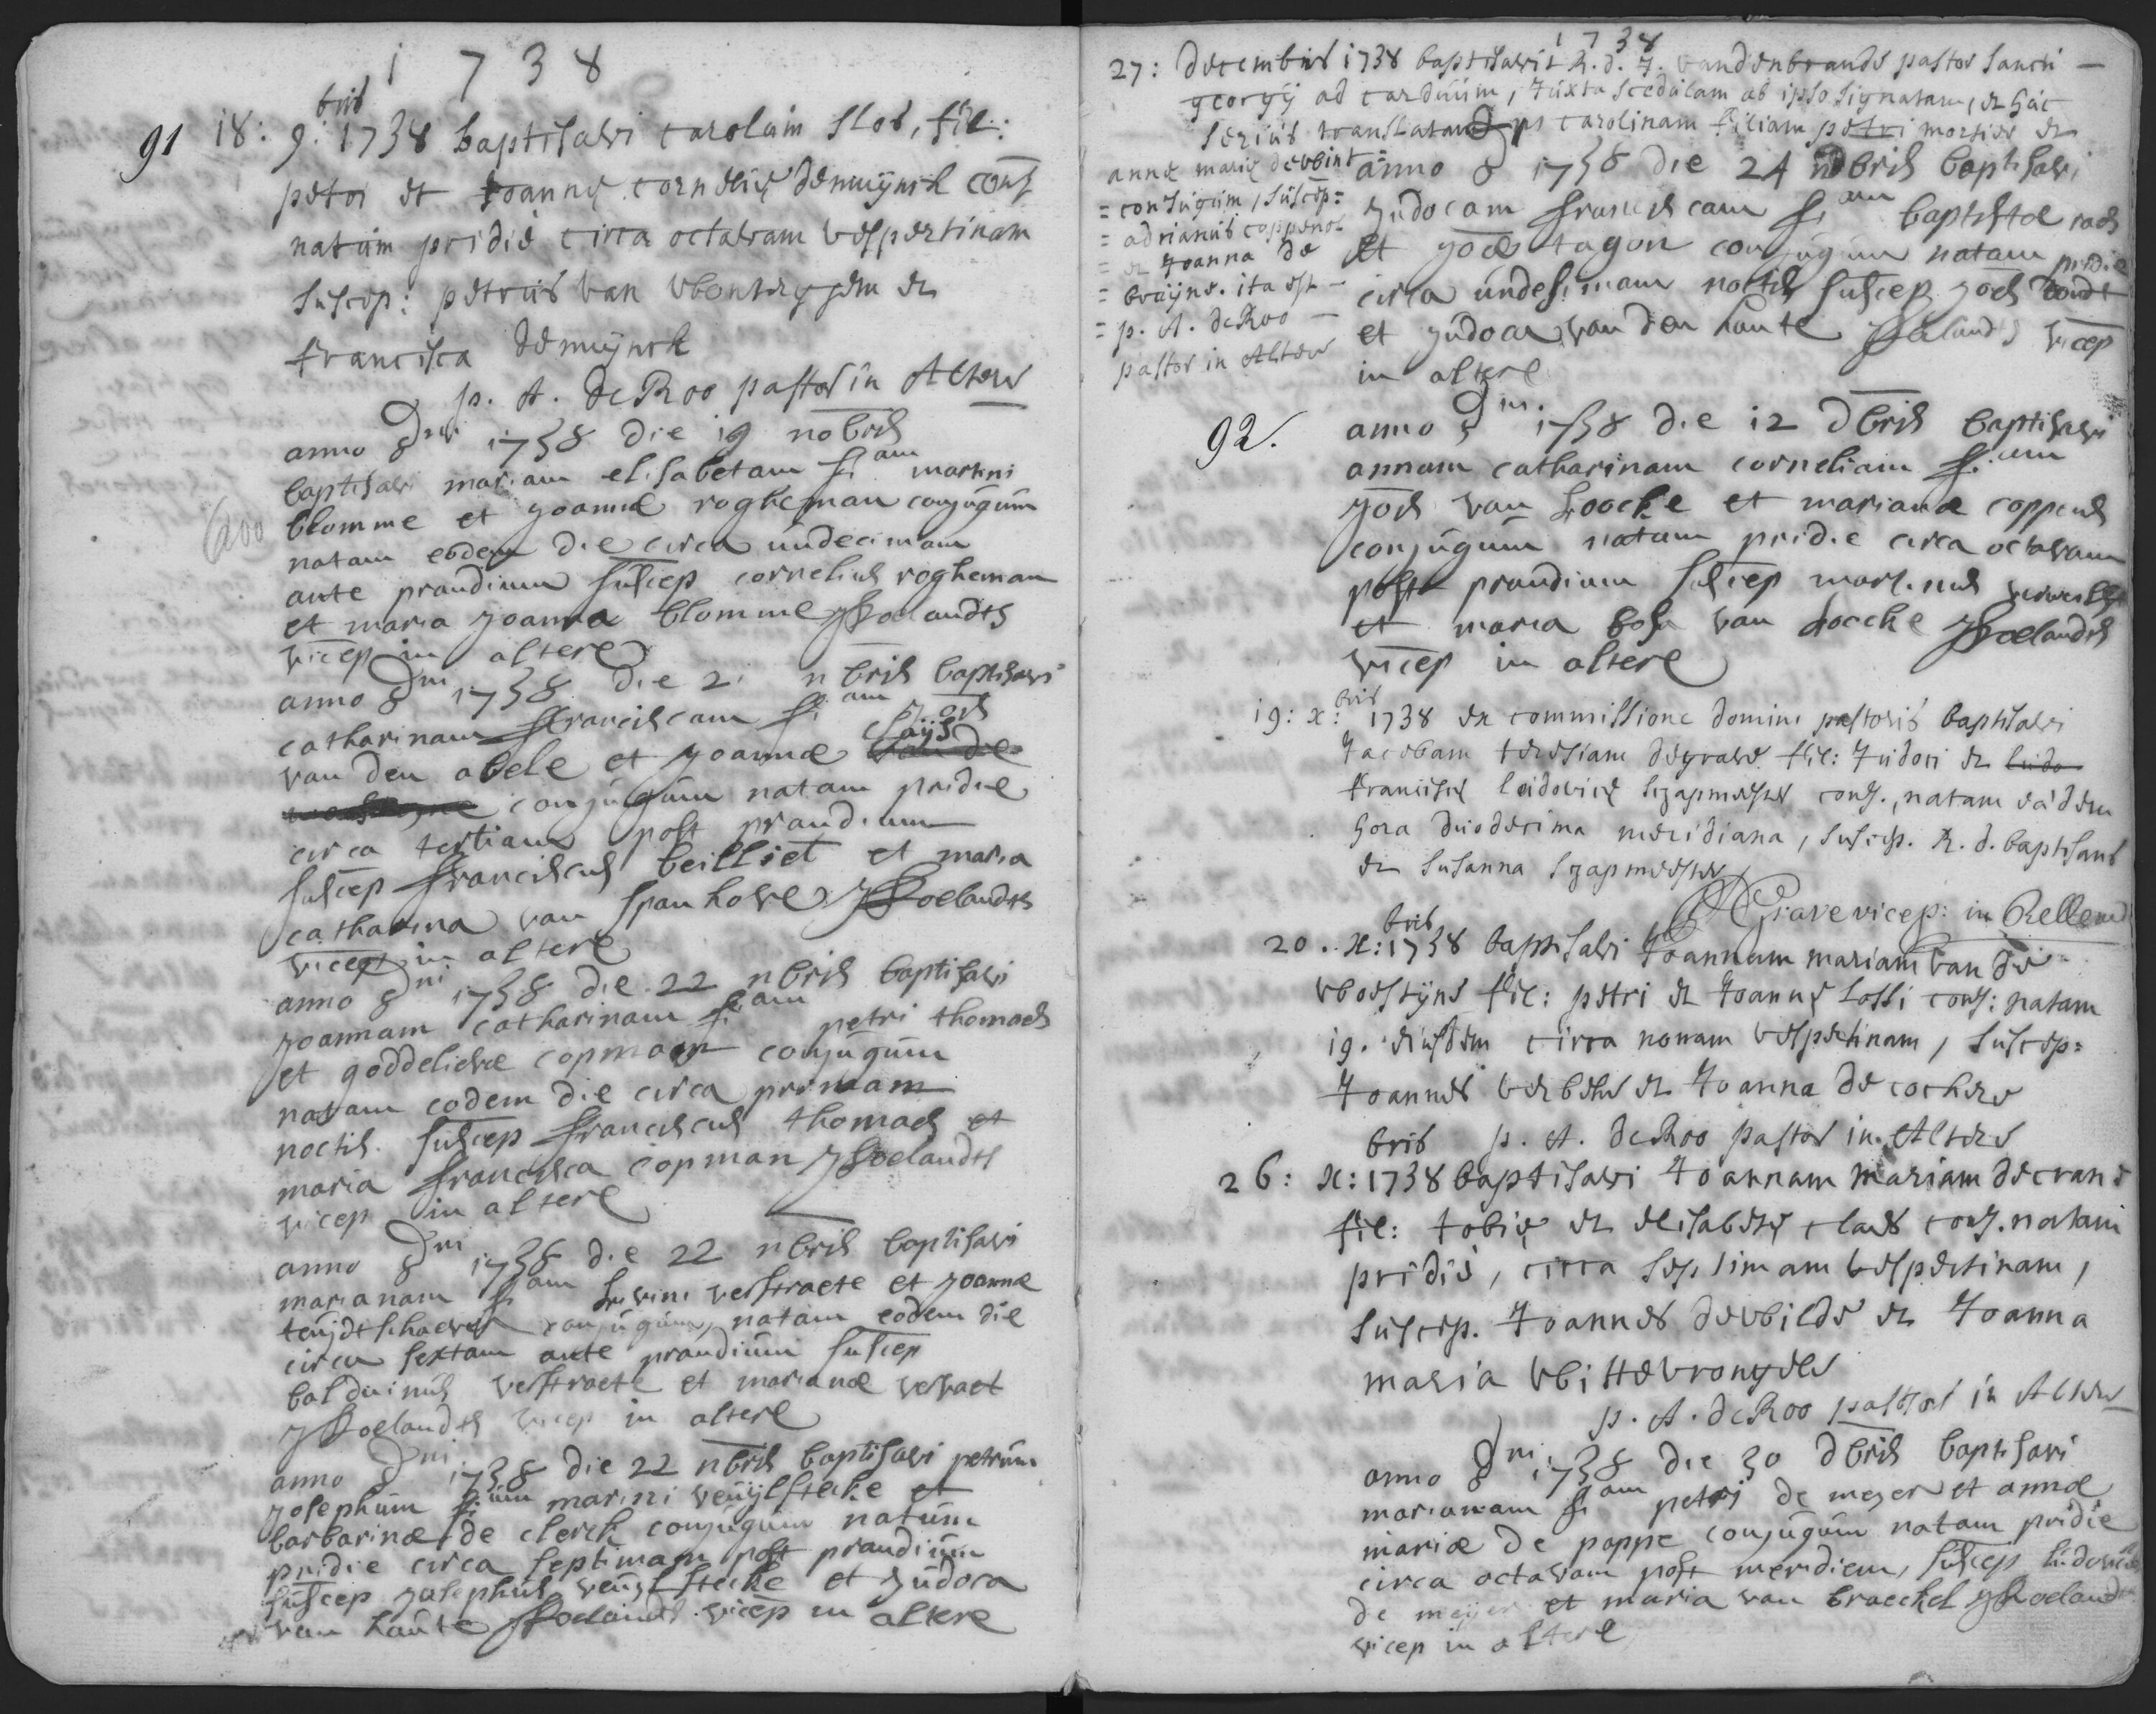 1738
91 18: 9:bris 1738 baptisavi carolum slos, fil:
petri et Joannæ corneliæ demuijnck conj
natum pridiè circa octavam vespertinam
suscep: petrus van wonterghem et
francisca demuijnck
p. A. DeRoo pastor in Altere
anno Dni 1738 die 19 nobris
baptisavi mariam elisabetam fi am martini
blomme et joannæ rogheman conjugum
natam eodem die circa undecimam
ante prandium suscep cornelius rogheman
et maria joanna blomme JRoelandts
vicep in altere
anno Dni 1738 die 21 nbris baptisavi
catharinam franciscam fi am joes
van den abele et joannæ claijs van de
conjugum natam pridie
circa tertiam post prandium
suscep franciscus beilliet et maria
catharina van spanhove JRoelandts
vicep in altere
anno Dni 1738 die 22 nbris baptisavi
joannam catharinam fi am petri thomaes
et goddelievæ copman conjugum
natam eodem die circa primam
noctis. suscep franciscus thomaes et
maria francisca copman JRoelandts
vicep in altere
anno Dni 1738 die 22 nbris baptisavi
marianam fi am livini verstraete et joannæ
conjugum, natam eodem die
circa sextam ante prandium suscep
balduinus verstraete et marianæ vervaet
JRoelandts vicep in altere
anno Dni 1738 die 22 nbris baptisavi petrum
josephum fi um marini veuijlsteke et
barbarinæ de clerck conjugum natum
pridie circa septimam post prandium
suscep josephus veuijlsteke et judoca
van haute JRoelandts vicep in altere
1738
27: decembris 1738 baptisavit R. d. J. vandenbrande pastor sancti
georgij ad carduum, juxta scedulam ab ipso signatam, et hac
seriùs translatam carolinam filiam petri mortier et
annæ mariæ
= conjugum, suscep:
= adrianus coppens
= et Joanna de
= bruijne. ita est
= p. A. DeRoo
pastor in Altere
anno D 1738 die 24 nobris baptisavi
judocam franciscam fi am baptistæ raes
et joæ tagon conjugum natam pridie
circa undesimam noctis suscep joes
et judoca van den haute JRoelandts vicep
in altere
92. anno Dni 1738 die 12 Dbris baptisavi
annam catharinam corneliam fi am
joes van hoocke et marianæ coppens
conjugum natam pridie circa octavam
post prandium suscep martinus
et maria van hoocke JRoelandts
vicep in altere
19: x:bris 1738 ex commissione domini pastoris baptisavi
Jacobam teresiam degrave fil: Judoci et ludo
franciscæ ludovicæ schapmeester conj., natam eâdem
hora duodecima meridiana, suscep. R. d. baptisans
et susanna schapmeester
DGrave vicep: in Bellem
20. x:bris 1738 baptisavi Joannam mariam van de
woestijne fil: petri et Joannæ lossi conj: natam
19. eiusdem circa nonam vespertinam, suscep:
Joannes verbeke et Joanna de cockere
p. A. DeRoo pastor in Altere
26: x:bris 1738 baptisavi Joannam mariam decrane
fil: tobiæ et elisabetæ claes conj. natam
pridiè, circa septimam vespertinam,
suscep. Joannes dewilde et Joanna
maria wittevrongel
p. A. DeRoo pastor in Altere
anno Dni 1738 die 30 Dbris baptisavi
marianam fi am petri de meyer et annæ
mariæ de poppe conjugum natam pridie
circa octavam post meridiem, suscep ludovicus
de meijer et maria van braeckel JRoelandts
vicep in altere